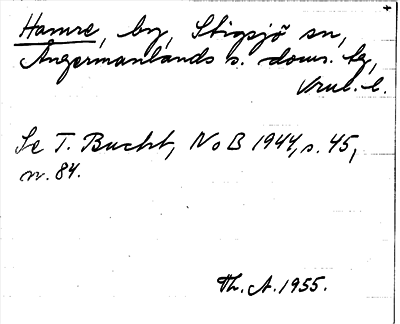 Hamre, by, Stigsjö sn,
Ångermanlands s. doms. tg,
Vnul. l.
Se T. Bucht, NoB 1944, s. 45,
n. 84.
Th. A. 1955.